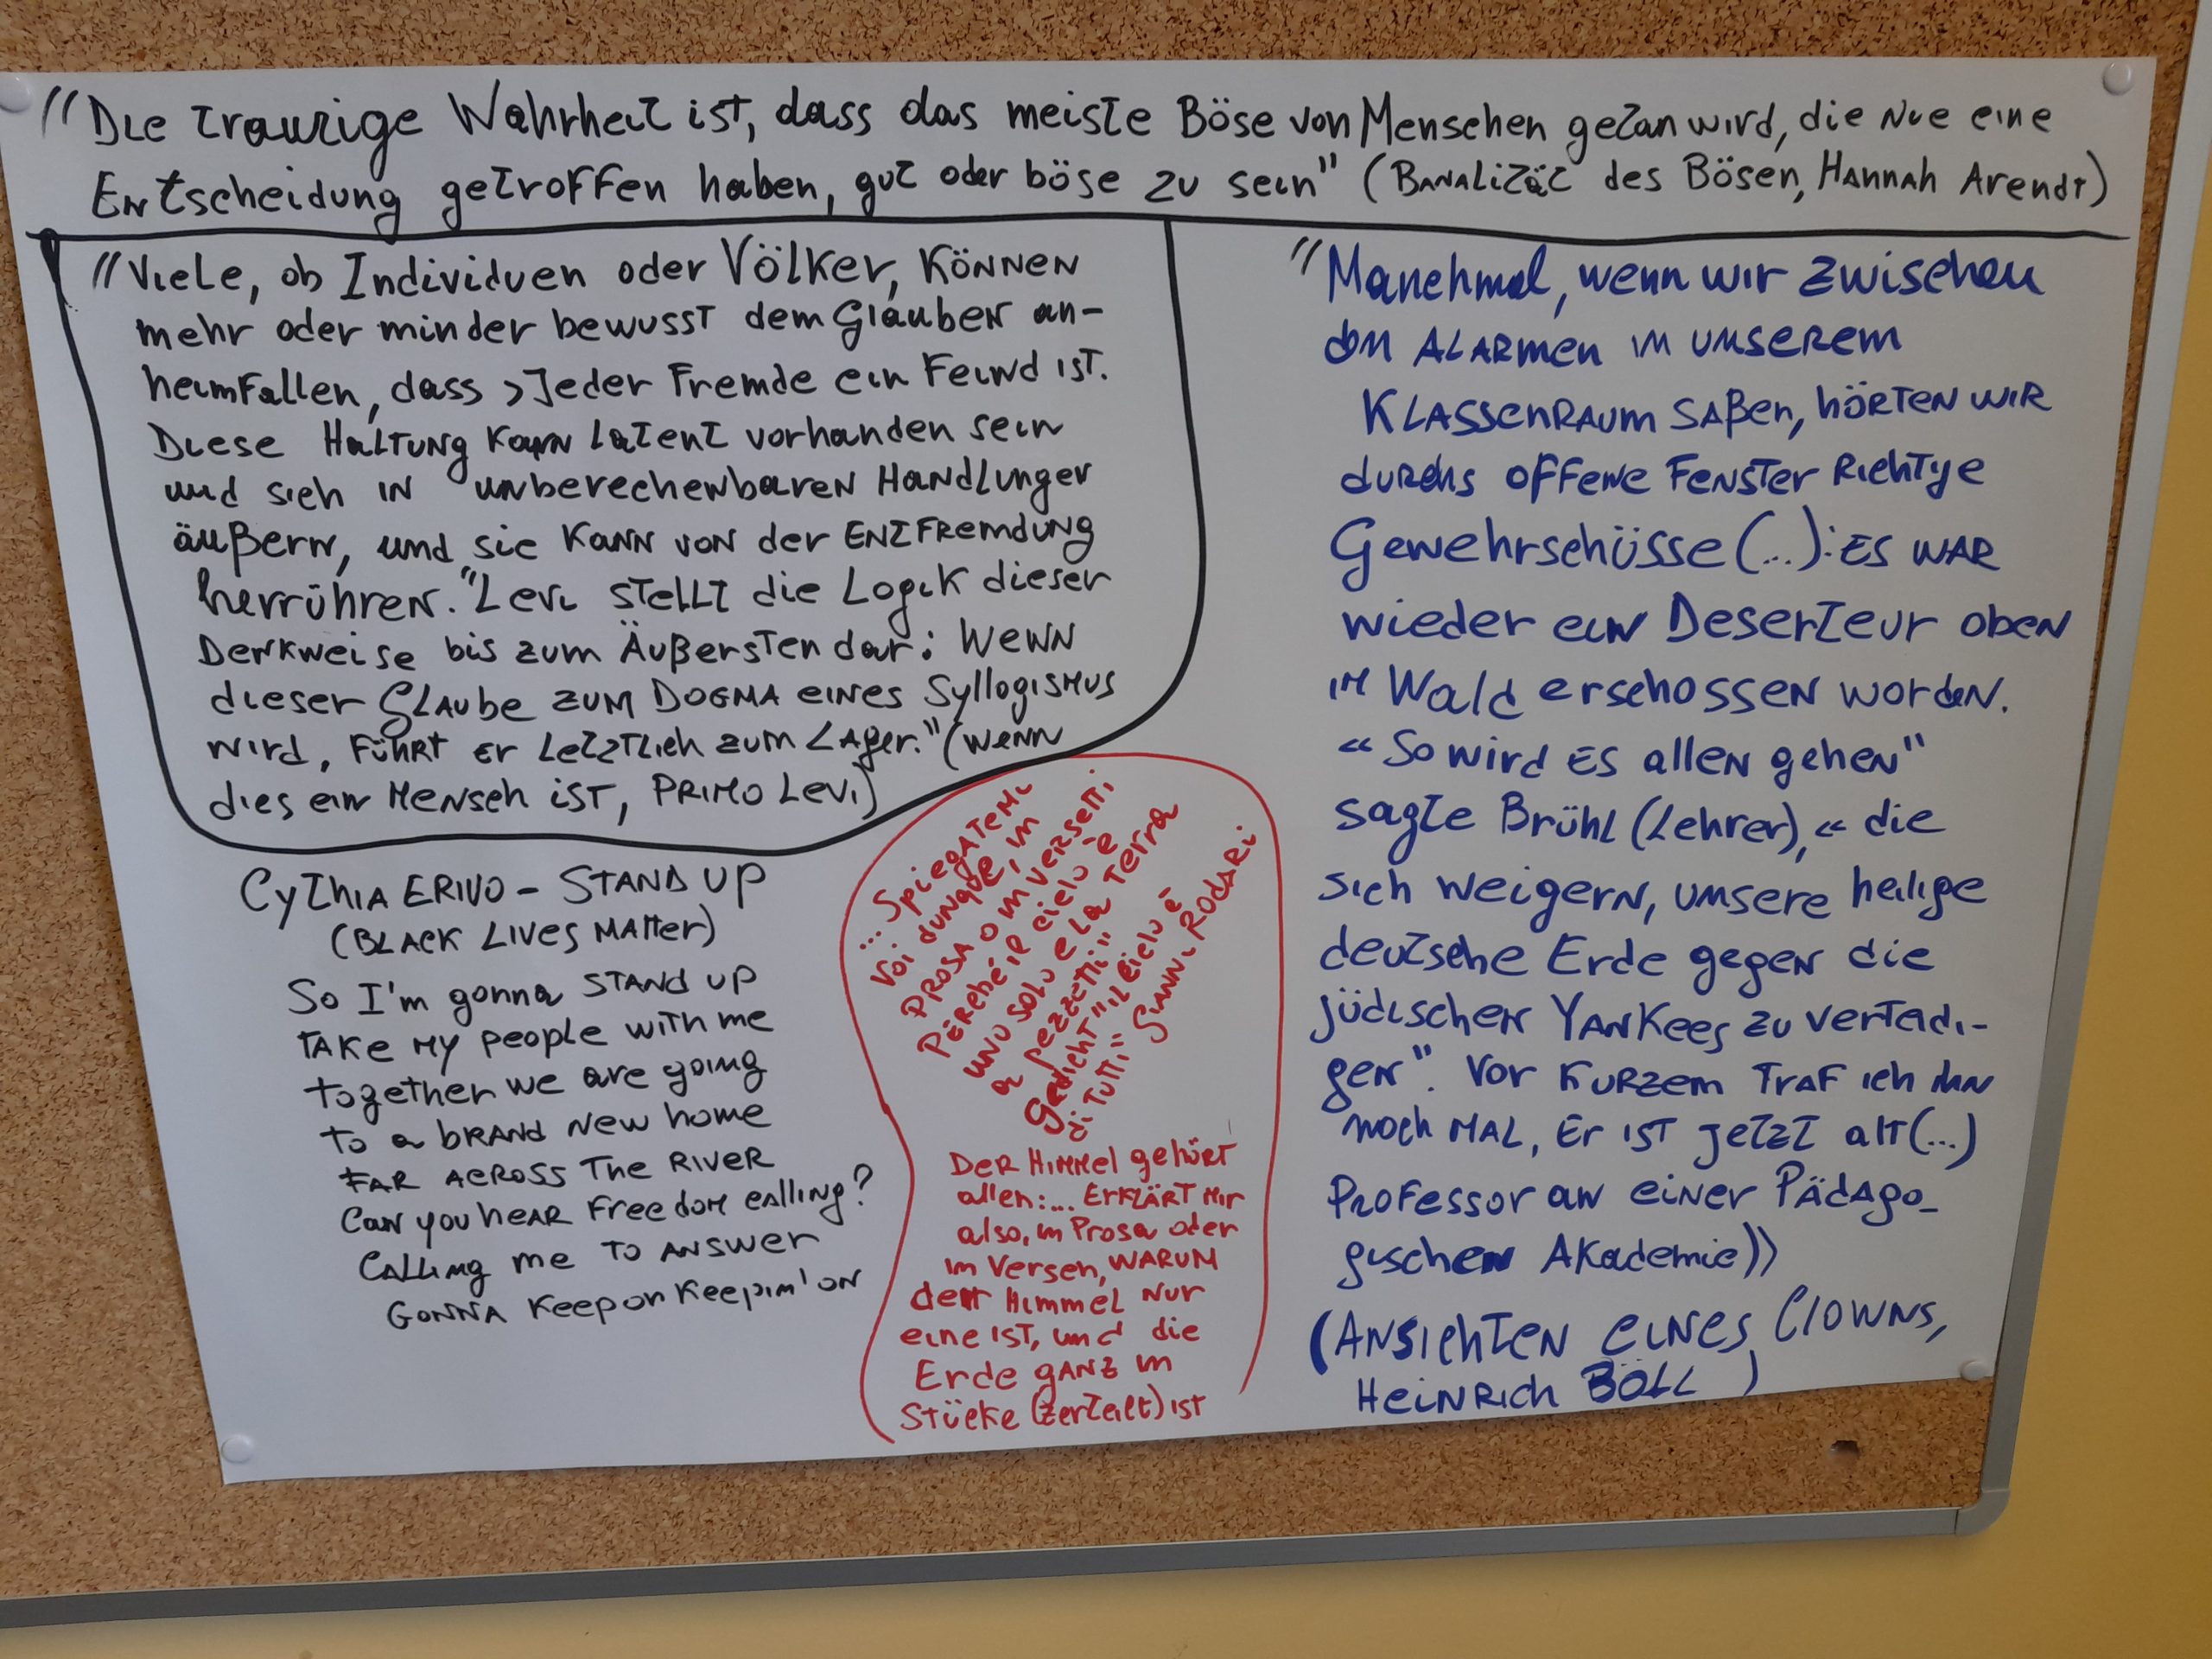 "Die traurige Wahrheit ist, dass das meiste Böse von Menschen getan wird, die nie eine
Entscheidung getroffen haben, gut oder böse zu sein" (Banalität des Bösen, Hannah Arendt)
"Viele, ob Individuen oder Völker, können
mehr oder minder bewusst dem Glauben an-
heimfallen, dass >Jeder Fremde ein Feind ist.
Diese Haltung kann latent vorhanden sein
und sich in unberechenbaren Handlungen
äußern, und sie kann von der Entfremdung
herrühren." Levi stellt die Logik dieser
Denkweise bis zum Äußersten dar: Wenn
dieser Glaube zum Dogma eines Syllogismus
wird, führt er letztlich zum Lager." (Wenn
dies ein Mensch ist, Primo Levi)
Cythia Erivo - Stand up
(Black Lives Matter)
So I'm gonna stand up
take my people with me
together we are going
to a brand new home
far across the river
can you hear freedom calling?
calling me to answer
gonna keep on keepin' on
... Spiegatemi
voi dunque, in
prosa o in versetti,
perché il cielo è
uno solo e la terra
a pezzetti"
Gedicht "il cielo è
di tutti" Gianni Rodari
Der Himmel gehört
allen:... Erklärt mir
also, in Prosa oder
in Versen, warum
der Himmel nur
eine ist, und die
Erde ganz in
Stücke (zerteilt) ist
"Manchmal, wenn wir zwischen
den Alarmen in unserem
Klassenraum saßen, hörten wir
durchs offene Fenster richtige
Gewehrschüsse (...): es war
wieder ein Deserteur oben
im Wald erschossen worden.
"So wird es allen gehen"
sagte Brühl (Lehrer), "die
sich weigern, unsere heilige
deutsche Erde gegen die
jüdischen Yankees zu verteidi-
gen". Vor kurzem traf ich ihn
noch mal, er ist jetzt alt (...)
Professor an einer Pädago-
gischen Akademie))
(Ansichten eines Clowns,
Heinrich Böll)